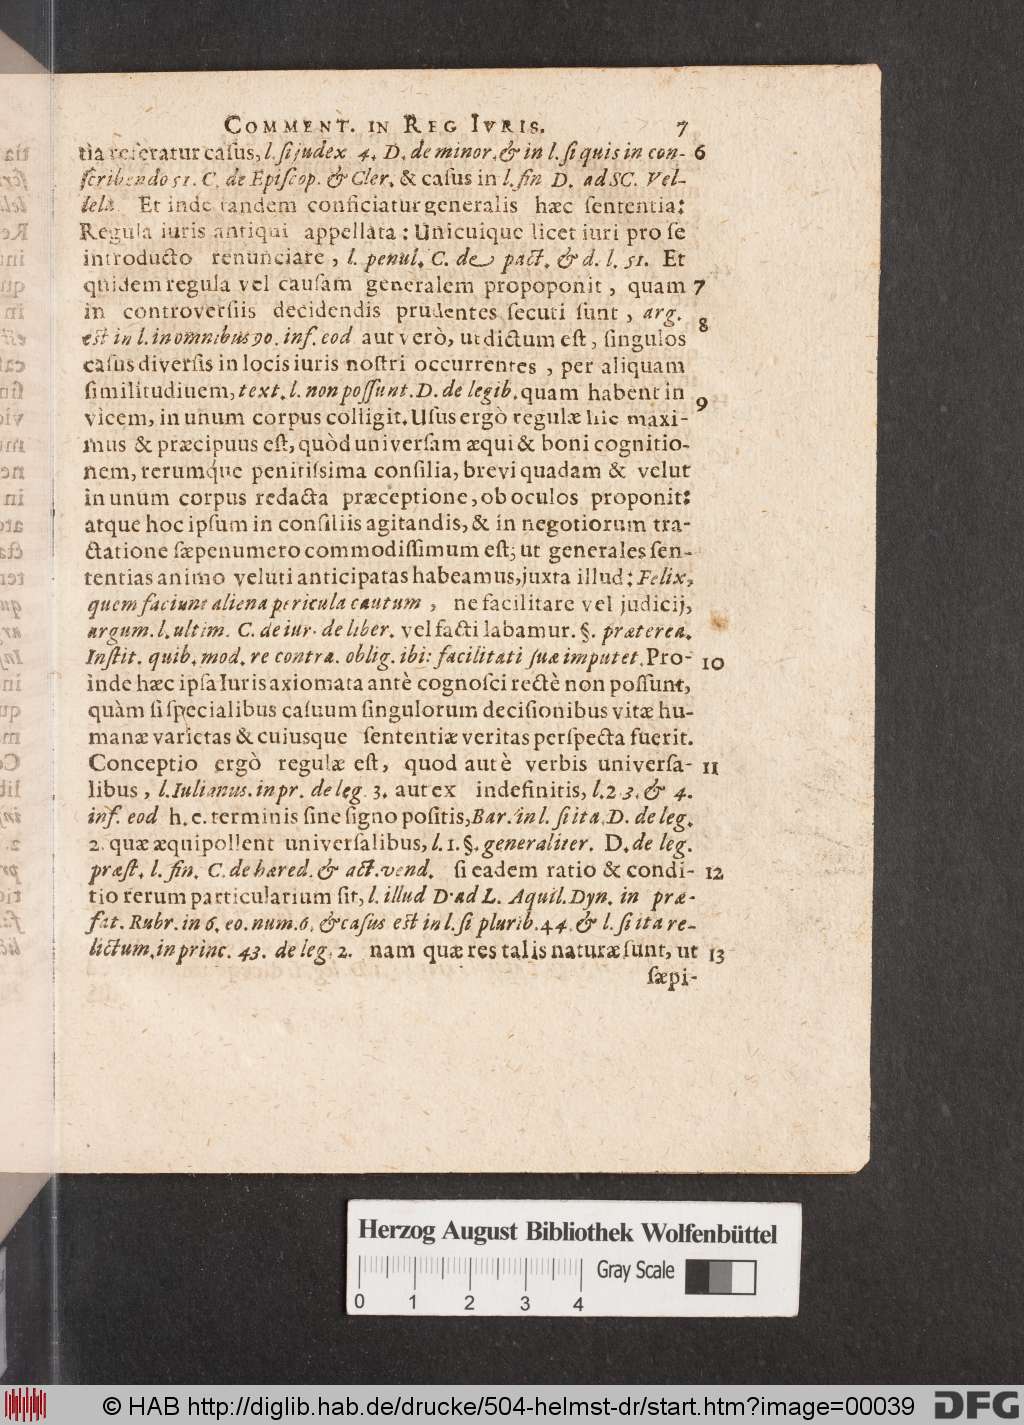 COMMENT. IN REG IVRIS. 7
tia referatur casus, l. si judex 4. D. de minor. & in l. si quis in con- 6
scribendo 51. C. de Episcop. & Cler. & casus in l. fin D. ad SC. Vel-
lela. Et inde tandem conficiatur generalis hæc sententia:
Regula iuris antiqui appellata: Unicuique licet iuri pro se
introducto renunciare, l. penul. C. de pact. & d. l. 51. Et
quidem regula vel causam generalem propoponit, quam 7
in controversiis decidendis prudentes secuti sunt, arg. 8
est in l. in omnibus 90. inf. eod aut verò, ut dictum est, singulos
casus diversis in locis iuris nostri occurrentes, per aliquam
similitudiuem, text. l. non possunt. D. de legib. quam habent in 9
vicem, in unum corpus colligit. Usus ergò regulæ hic maxi-
mus & præcipuus est, quòd universam æqui & boni cognitio-
nem, rerumque penitissima consilia, brevi quadam & velut
in unum corpus redacta præceptione, ob oculos proponit:
atque hoc ipsum in consiliis agitandis, & in negotiorum tra-
ctatione sæpenumero commodissimum est; ut generales sen-
tentias animo veluti anticipatas habeamus, juxta illud: Felix,
quem faciunt aliena pericula cautum, ne facilitare vel judicij,
argum. l. ultim. C. de iur. de liber. vel facti labamur. §. præterea.
Instit. quib. mod. re contra. oblig. ibi: facilitati suæ imputet. Pro- 10
inde hæc ipsa Iuris axiomata antè cognosci rectè non possunt,
quàm si specialibus casuum singulorum decisionibus vitæ hu-
manæ varietas & cuiusque sententiæ veritas perspecta fuerit.
Conceptio ergò regulæ est, quod autè verbis universa- 11
libus, l. Iulianus. in pr. de leg. 3. aut ex indefinitis, l. 2 3. & 4.
inf. eod h. e. terminis sine signo positis, Bar. in l. si ita. D. de leg.
2. quæ æquipollent universalibus, l. 1. §. generaliter. D. de leg.
præst. l. fin. C. de hæred. & act. vend. si eadem ratio & condi- 12
tio rerum particularium sit, l. illud D. ad L. Aquil. Dyn. in præ-
fat. Rubr. in 6. eo. num. 6. & casus est in l. si plurib. 44. & l. si ita re-
lictum. in princ. 43. de leg. 2. nam quæ res talis naturæ sunt, ut 13
sæpi-
Herzog August Bibliothek Wolfenbüttel
Gray Scale
0 1 2 3 4
© HAB http://diglib.hab.de/drucke/504-helmst-dr/start.htm?image=00039
DFG